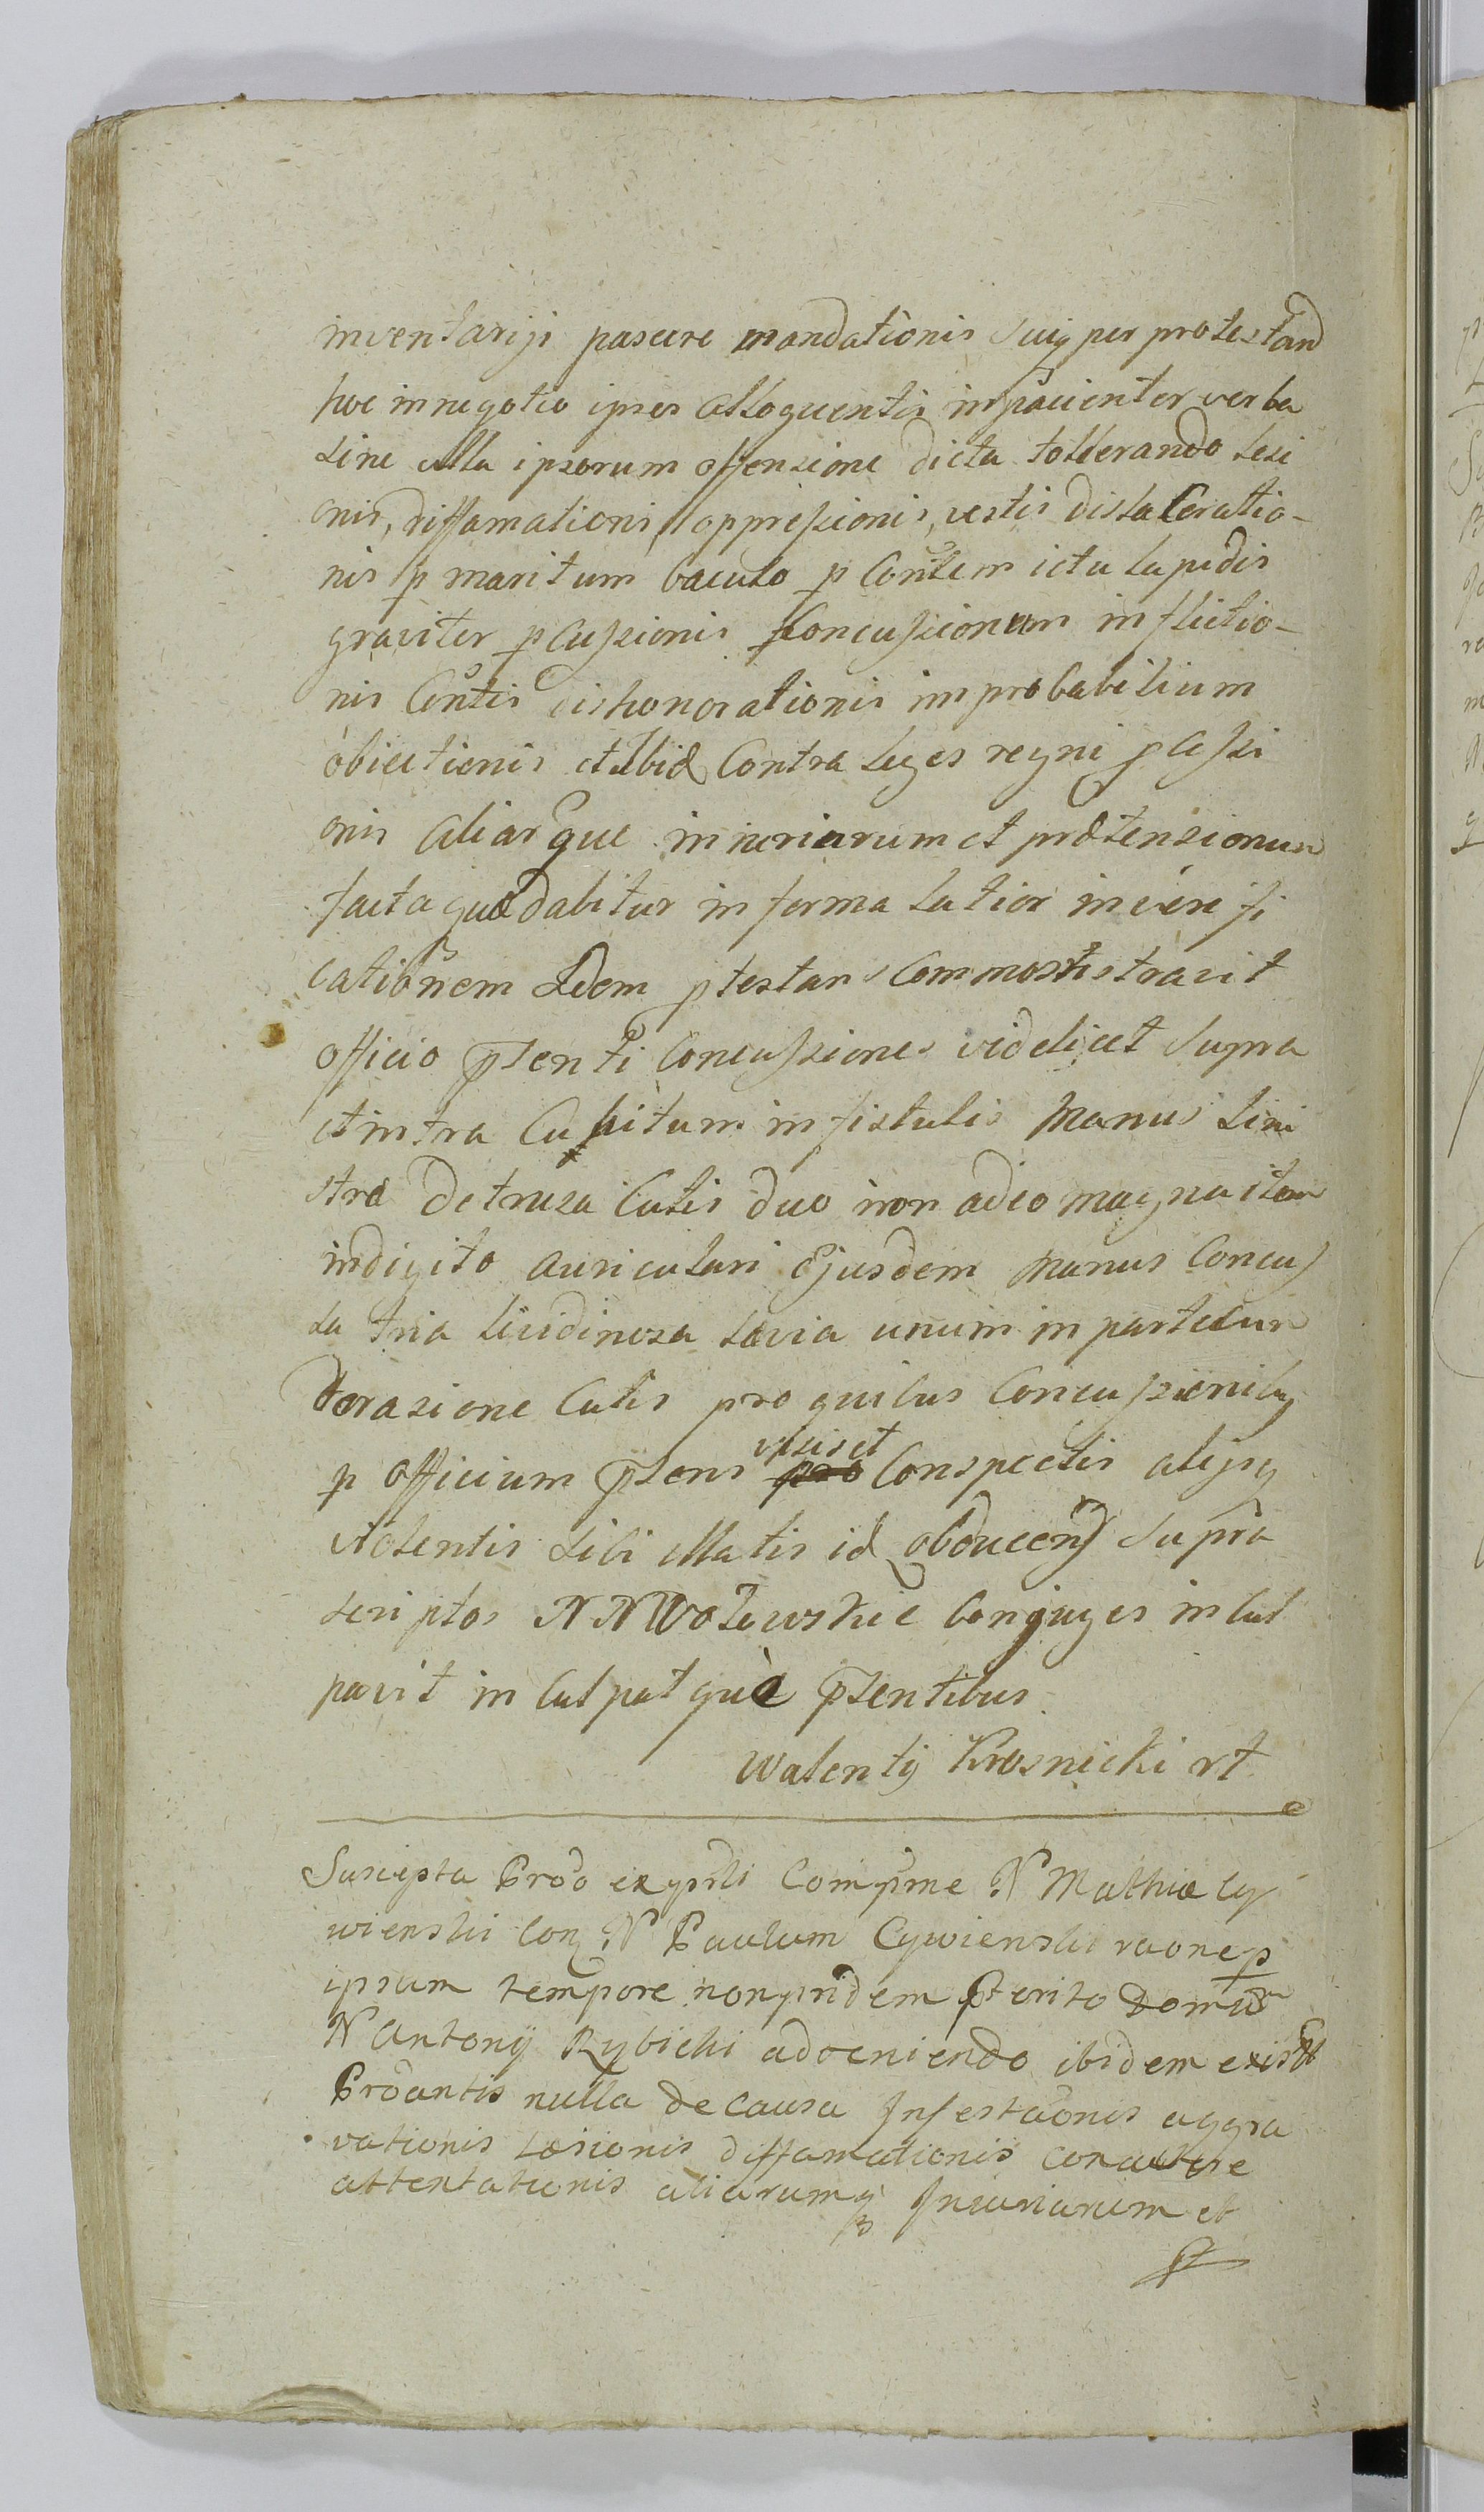 inventariji pascere mandationis suiq per protestand
hoc in negotio ipsis alloquentis inpacienter verba
sine ulla ipsorum offensione dicta tollerando lesi
onis, diffamationis, oppressionis, vestis dislaceratio-
nis p maritum baculo p Contem ictu lapidis
graviter pcussionis Concussionum inflictio-
nis Contis dishonorationis improbabilium
obiectionis et ibid Contra leges regni pcussi
onis aliarque iniuriarum et prætensionum
facta quæ dabitur in forma latiori in veri fi
cationem Idem ptestans commonstravit
officio psenti Concussiones videlicet supra
et intra Cubitum in fistulis manus sini
stræ detrusa Cutis duo non adeo magna item
in digito auriculari ejusdem manus Concus
sa tria lividinosa lævia unum in parte cum
derasione Cutis pro quibus Concussionibus
p officium psens visis et Conspectis alijsq
violentis sibi illatis id obducend supra
scriptos NN Wolewskie Conjuges incul
pavit inculpatque psentibus
Walenty Krosnicki rt
Suscepta Prõo ex ptli Compme N Mathiæ Cy
wienski Con N Paulum Cywienski raone p
ipsum tempore non pridem pterito Domum
N Antonij Rybicki adveniendo ibidem exist
Prõantis nulla de causa Infestaonis aggra
vationis læsionis diffamationis
attentationis aliarumq Iniuriarum et